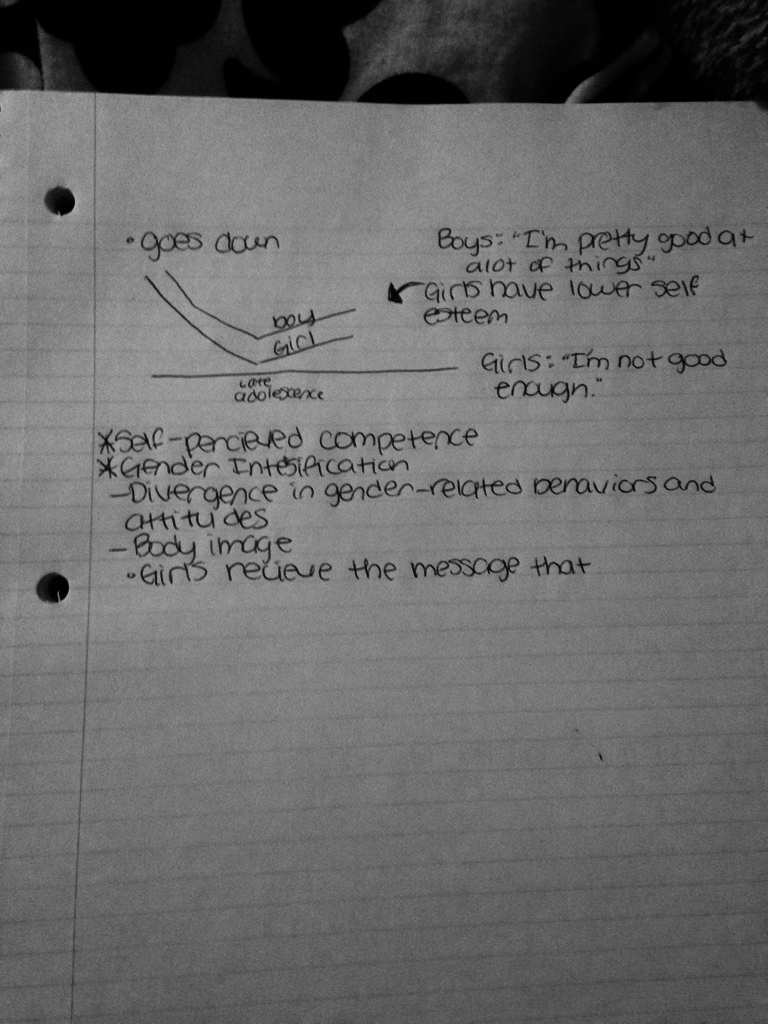 • goes down
Boys: "I'm pretty good at
alot of things"
Girls have lower self
esteem
boy
Girl
Girls: "I'm not good
enough."
Late
adolescence
*Self-percieved competence
*Gender Intesification
-Divergence in gender-related behaviors and
attitudes
- Body image
• Girls recieve the message that